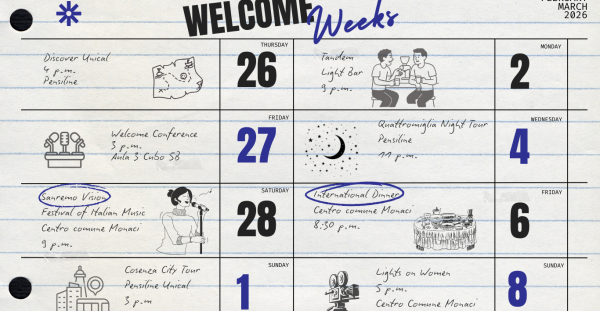 WELCOME
Weeks
MARCH
2026
Discover Unical
4 p.m.
Pensiline
THURSDAY
26
Tandem
Light Bar
9 p.m.
MONDAY
2
Welcome Conference
3 p.m.
Aula 3 Cubo 58
FRIDAY
27
Quattromiglia Night Tour
Pensiline
11 p.m.
WEDNESDAY
4
Sanremo Vision
Festival of Italian Music
Centro comune Monaci
9 p.m.
SATURDAY
28
International Dinner
Centro comune Monaci
8:30 p.m.
FRIDAY
6
Cosenza City Tour
Pensiline Unical
3 p.m
SUNDAY
1
Lights on Women
5 p.m.
Centro Comune Monaci
SUNDAY
8